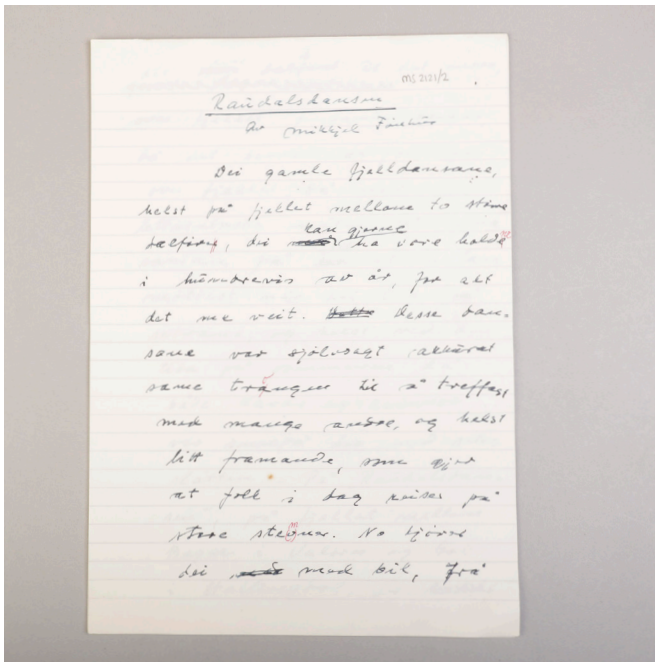 ms 2121/2
Raudalsdansen
Av Mikkjel Fønhus
Dei gamle fjelldansane,
helst på fjellet mellom to store
dalføre, dei kan gjerne ha vore haldne
i hundrevis av år, for alt
det me veit. Desse dan-
sane var sjølvsagt akkurat
same trangen til å treffast
med mange andre, og helst
litt framande, som gjer
at folk i dag reiser på
store stevner. No kjører
dei med bil, frå